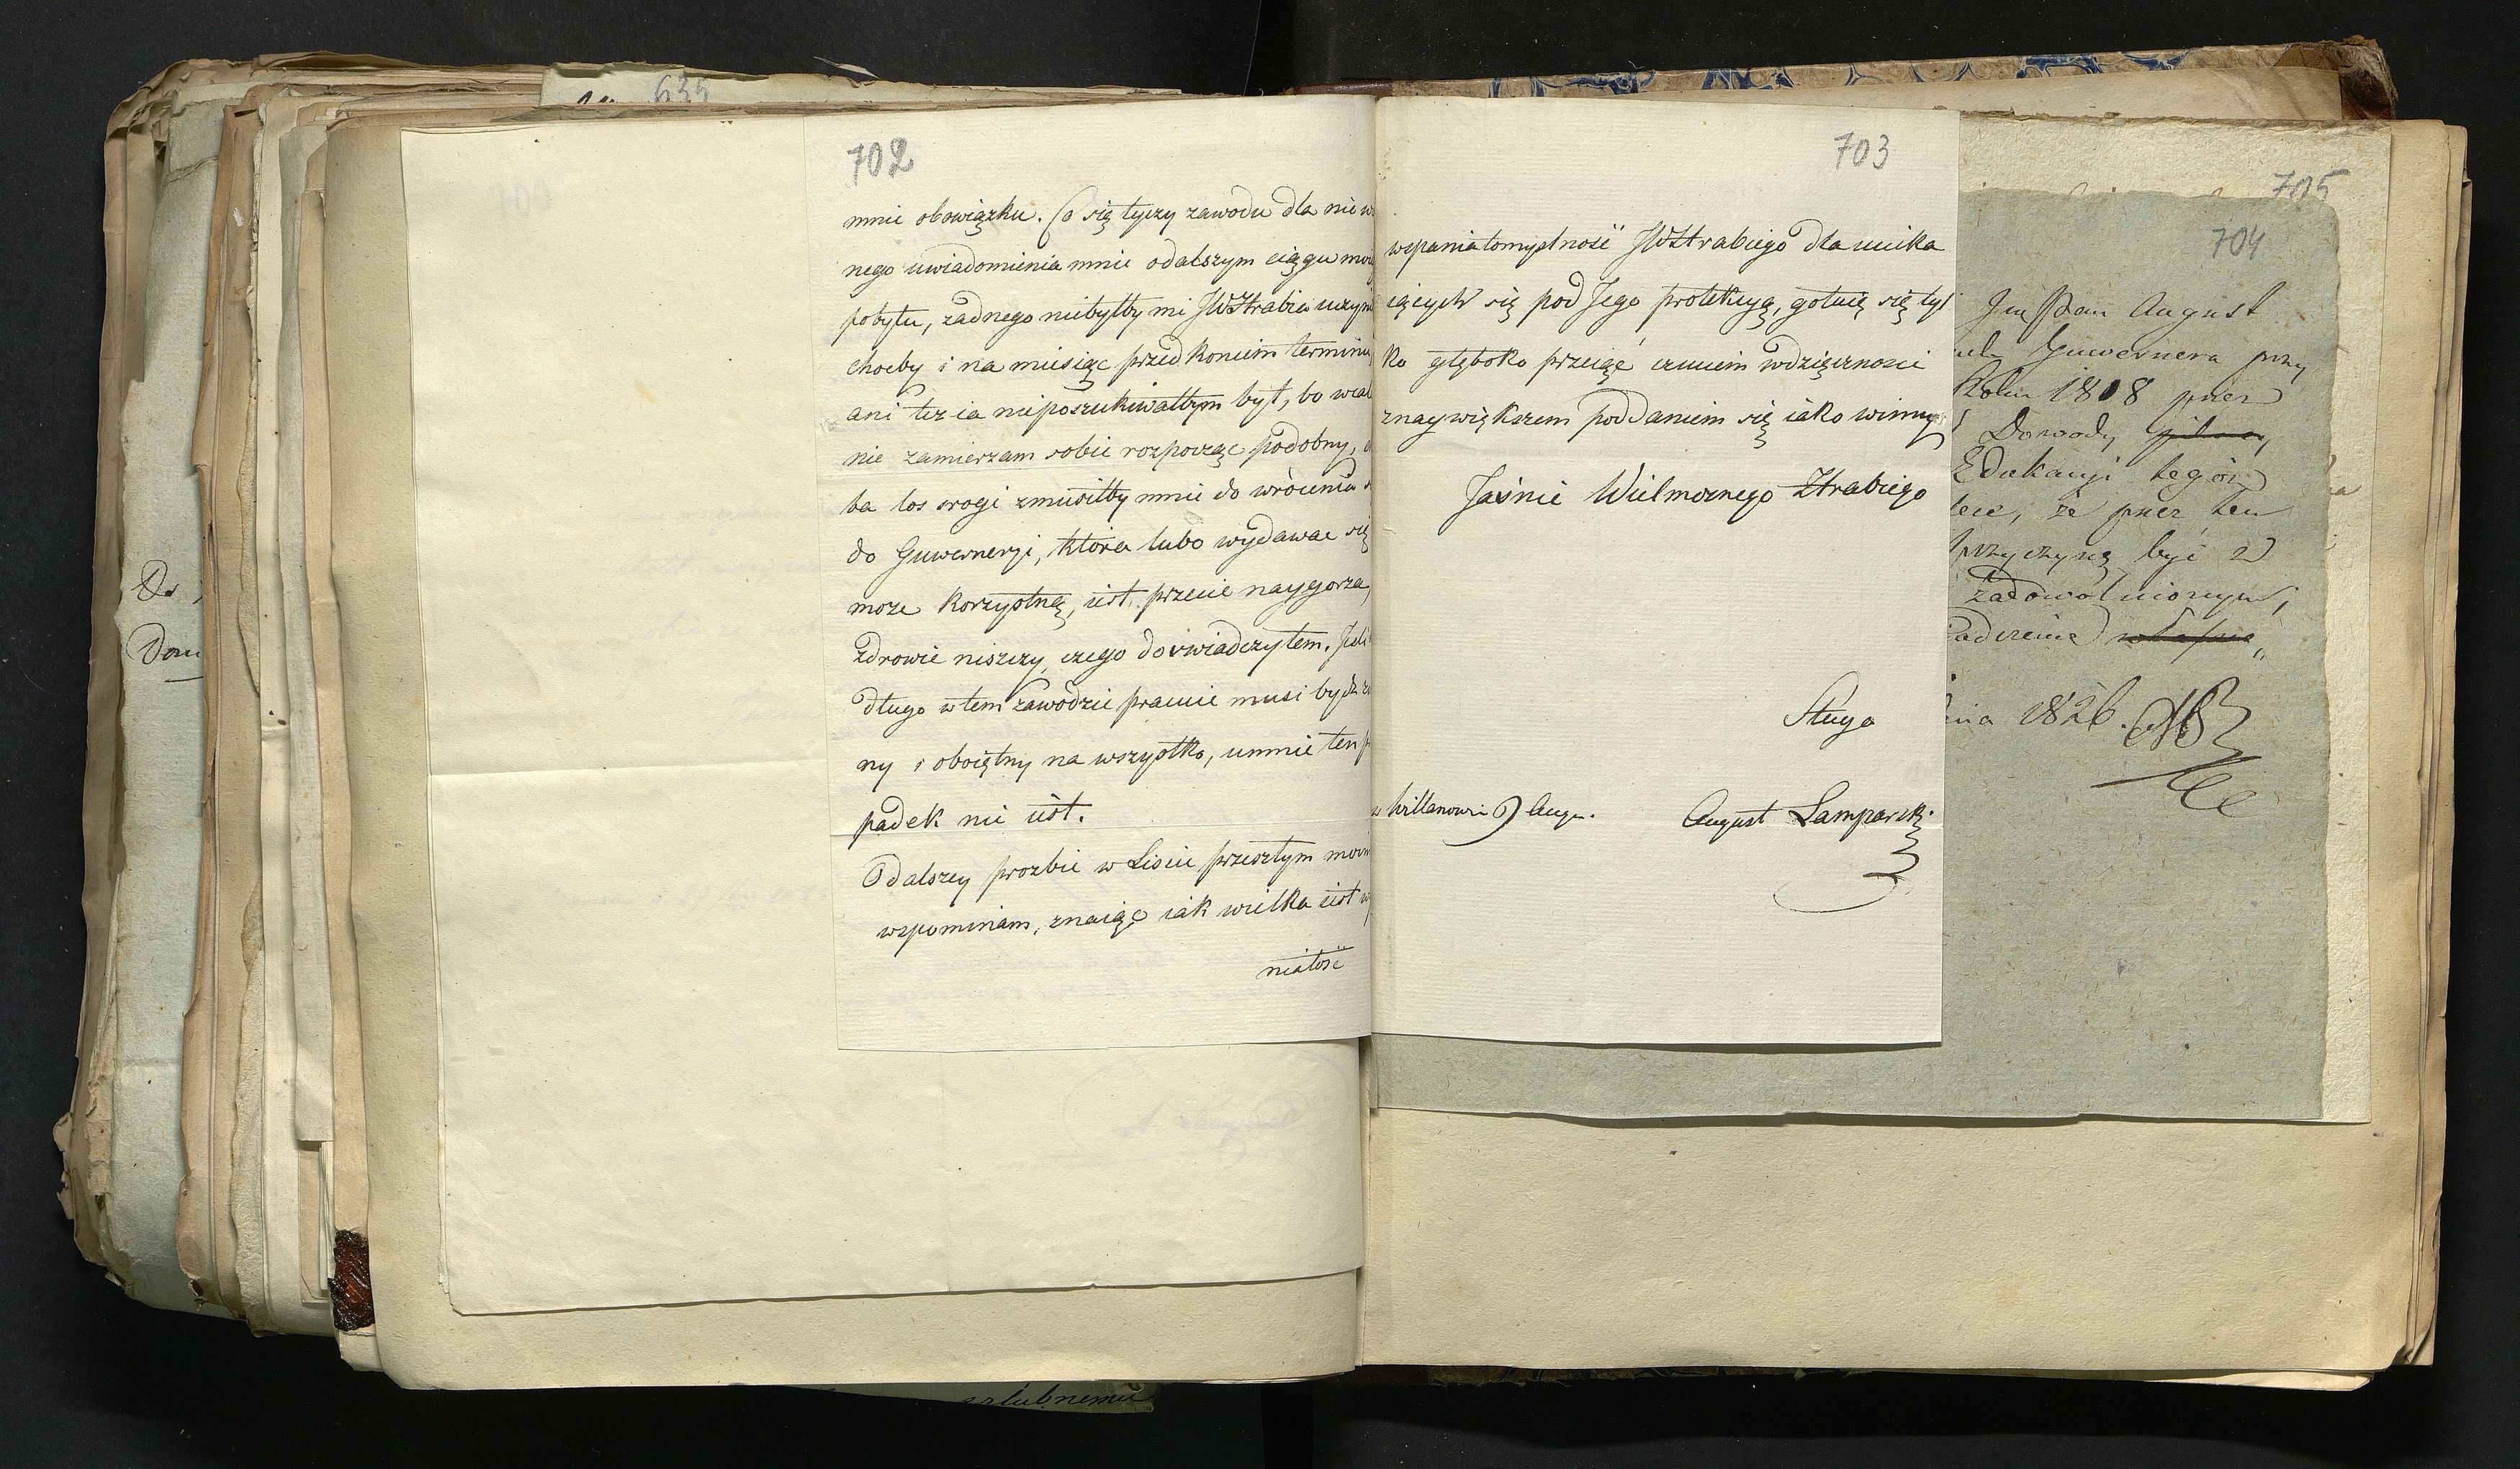 635
702
mnie obowiązku. Co się tyczy zawodu dla nie
nego uwiadomienia mnie odalszym ciągu
pobytu, żadnego niebyłby mi JWHrabia
choćby i na miesiąc przed koncem terminu
ani też ia nieposzukiwałbym był, bo
nie zamierzam sobie rozpocząc podobny,
ba los srogi zmusiłby mnie do wrócenia
do Guwernerji, która lubo wydawac się
może korzystną, iest przecie naygorza,
zdrowie niszczy, czego doświadczyłem.
długo w tem zawodzie pracuie musi bydz
ny i oboiętny na wszystko, umnie ten
padek nie iest.
O dalszey prozbie w Liscie przeszłym
wspominam, znaiąc iak wielka iest
niałość
703
wspaniałomyslność JWHrabiego dla ucieka
iących się pod Jego protekcyą, gotuię się tyl
ko głęboko przeiąć czuciem wdzięcznosci
znaywiększem poddaniem się iako winny
Jaśnie Wielmoznego Hrabiego
Sługa
w Willanowie 9 Aug.
August Lamparski
705
704
Jm Pan August
Guwernera przy
Roku 1808 przez
Dowody
Edukacyi tegoż
że przez ten
przyczyną być z
zadowolnionym,
1826.
Do
Dom
szlubnemu